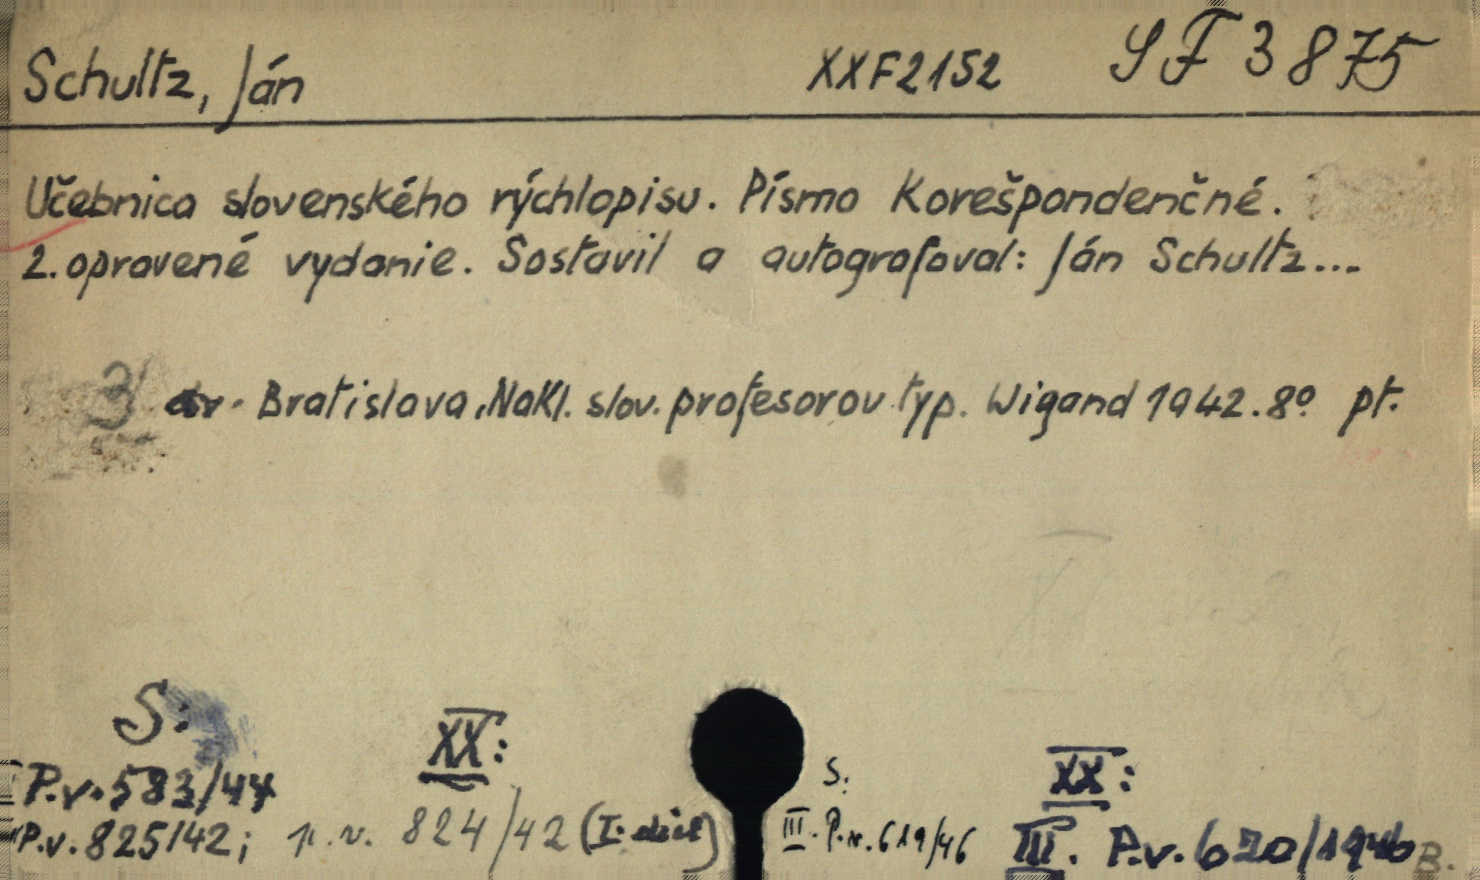 Schultz, Ján XXF2152 SF 3875
Učebnica slovenského rýchlopisu. Písmo Korešpondenčné.
2. opravené vydanie. Sostavil a autografoval: Ján Schultz...
3 Bratislava, Nakl. slov. profesorov typ. Wigand 1942. 8° pt.
S: XX: S. XX:
P.v. 583/44
P.v. 825/42; p.v. 824/42 (I. diel) III. P.v. 619/46 III. P.v. 620/1946 B.